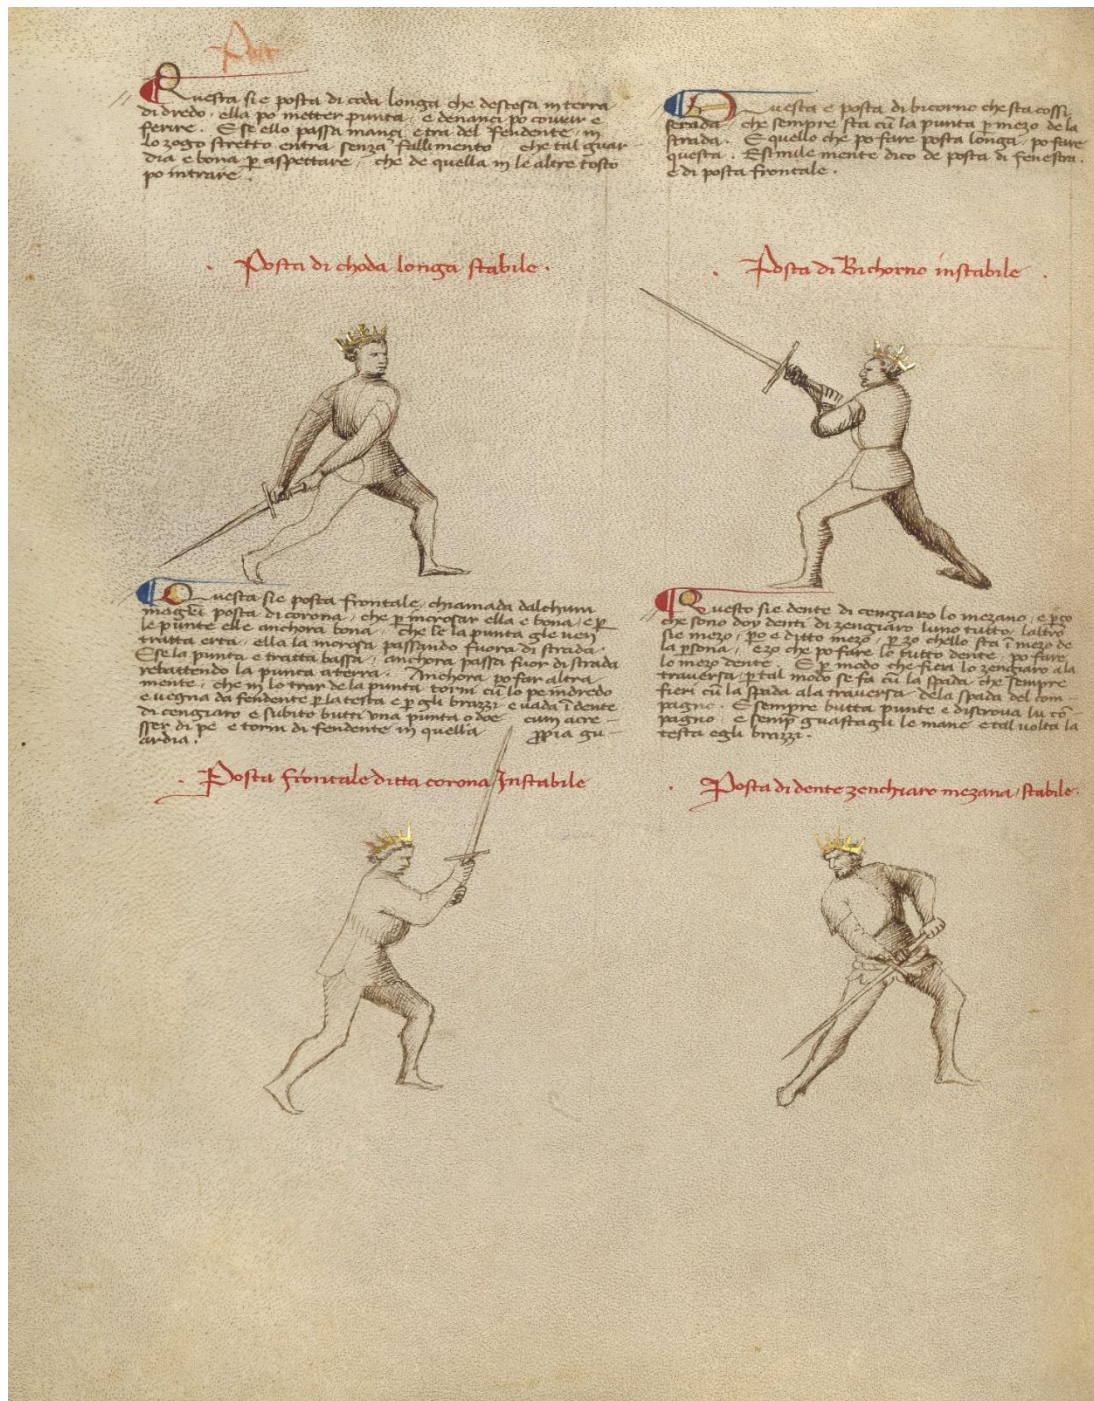 Questa si e posta di coda longa che destesa in terra
di dredo, ella po metter punta, e denanci po covrir e
ferire. E se ello passa inanci e tra del fendente, in
lo zogo stretto entra senza fallimento, che tal guar
dia e bona per aspettare, che de quella in le altre tosto
po intrare.
Posta di choda longa stabile.
Questa e posta di bicorno che sta cossi
serada, che sempre sta cū la punta p mezo de la
strada. E quello che po fare posta longa, po fare
questa. E simile mente dico de posta di fenestra.
e di posta frontale.
Posta di Bichorno instabile.
Questa sie posta frontale, chiamada dalchun
posta di corona, che p incrosar ella e bona, e p
le punte elle anchora bona, che se la punta gle ven
tratta erta, ella la incrosa passando fuora di strada.
E se la punta e tratta bassa, anchora passa fuor di strada
rebattendo la punta a terra. Anchora po far altra
mente, che in lo trar de la punta torni cū lo pe indredo
e vegna da fendente p la testa e p gli brazzi e vada ī dente
di cengiaro e subito butti una punta o doe cum acre
sser di pe e torni di fendente in quella ppia gu
ardia.
Posta frontale ditta corona Instabile
Questo sie dente di cengiaro lo mezano, e p ço
che sono doy denti di zengiaro luno tutto, laltro
sie mezo, po e ditto mezo, p zo chello sta ī mezo de
la psona, e zo che po fare lo tutto dente, po fare
lo mezo dente. E p modo che fieri lo zengiaro a la
traversa, p tal modo se fa cū la spada, che sempre
fieri cū la spada ala traversa dela spada del com
pagno. E sempre butta punte e discrova lu cō
pagno, e semp guastagli le mane e tal volta la
testa e gli brazzi.
Posta di dente zenchiaro mezana, stabile.